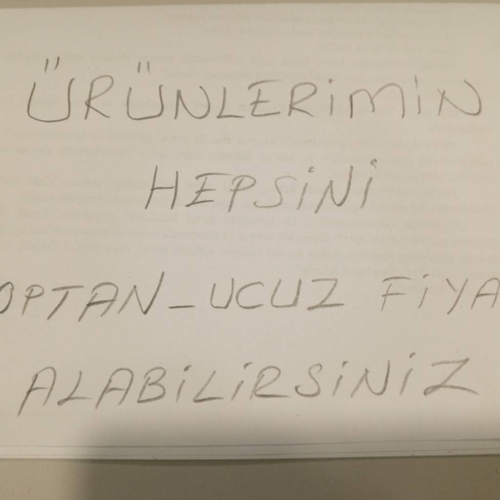 ÜRÜNLERİMİN
HEPSİNİ
OPTAN_UCUZ FİYA
ALABİLİRSİNİZ